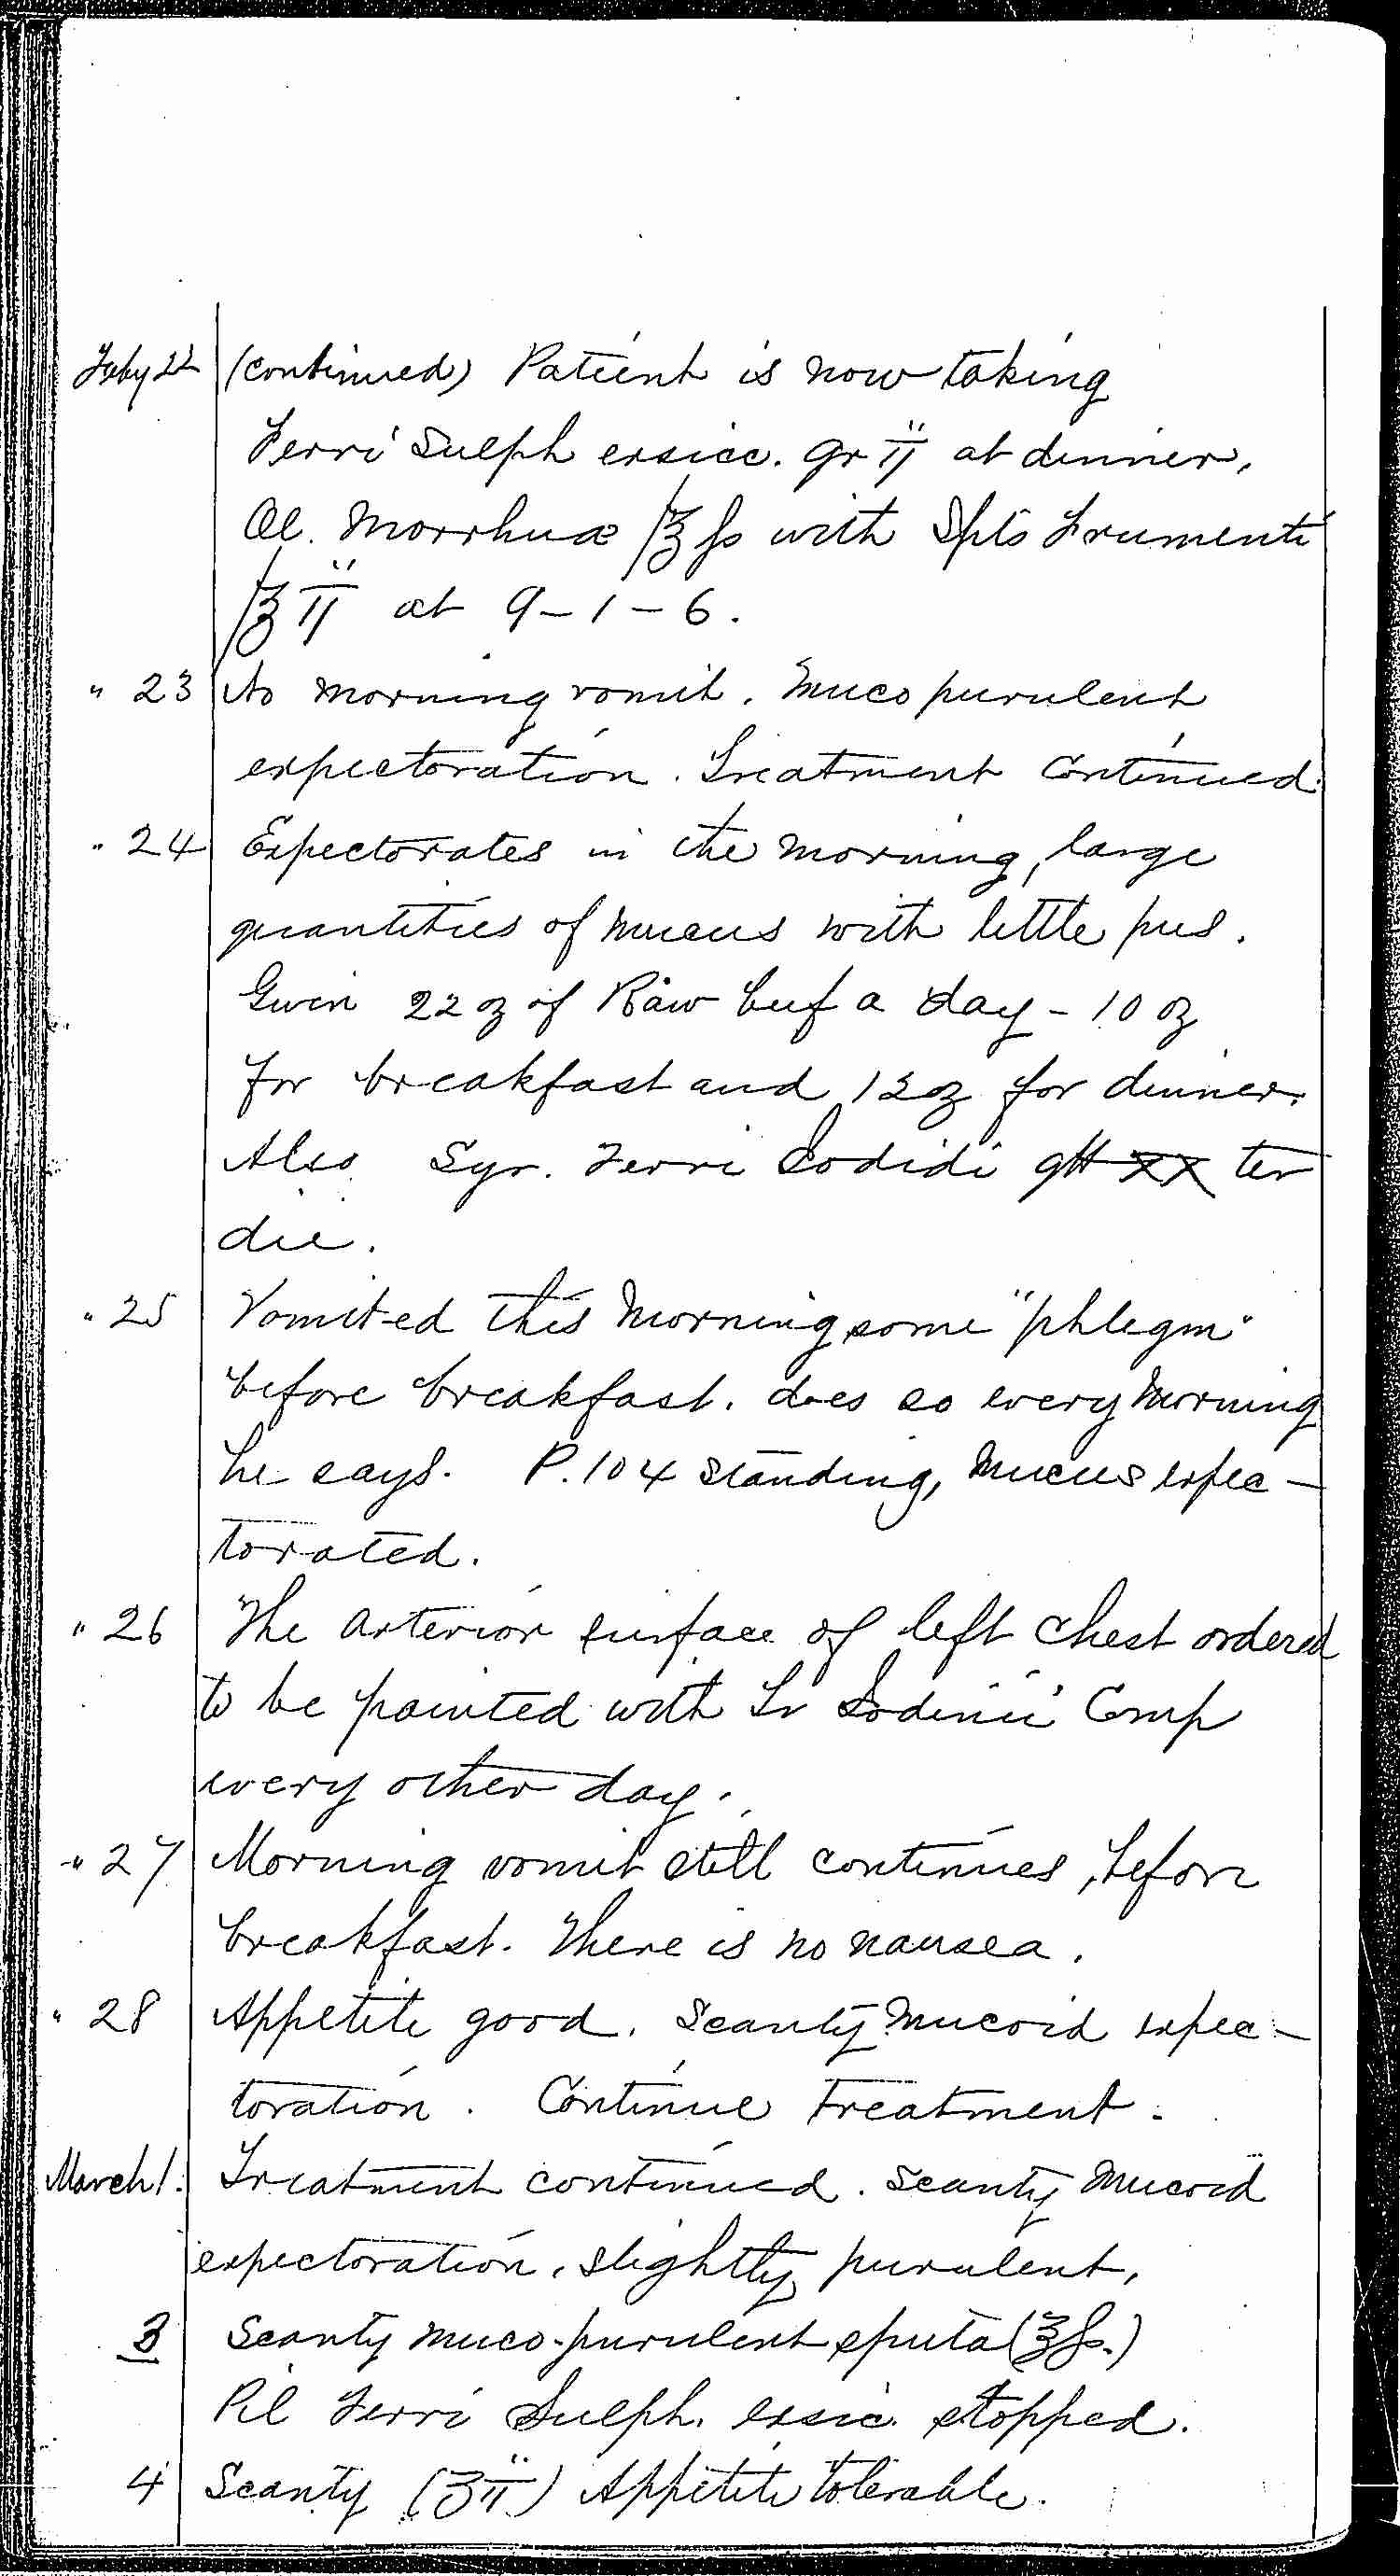 Feby 22 (continued) Patient is now taking
Ferri Sulph exsicc. gr ii at dinner,
Ol. Morrhuæ f℥ ss with Spts Frumenti
f℥ ii at 9-1-6.
" 23 No morning vomit. Muco purulent
expectoration. Treatment continued.
" 24 Expectorates in the morning, large
quantities of mucus with little pus.
Given 22 oz of Raw beef a day - 10 oz
for breakfast and 12 oz for dinner.
Also Syr. Ferri Iodidi gtt xx ter
die.
" 25 Vomited this morning some "phlegm"
before breakfast. does so every morning
he says. P. 104 standing, Mucus expec-
torated.
" 26 The anterior surface of left chest ordered
to be painted with Tr Iodinii Comp
every other day.
" 27 Morning vomit still continues, before
breakfast. There is no nausea.
" 28 Appetite good. Scanty Mucoid expec-
toration. Continue treatment.
March 1. Treatment continued. Scanty Mucoid
expectoration, slightly purulent,
3 Scanty muco-purulent sputa (℥ss.)
Pil Ferri Sulph. exsic. stopped.
4 Scanty (ʒii) Appetite tolerable.